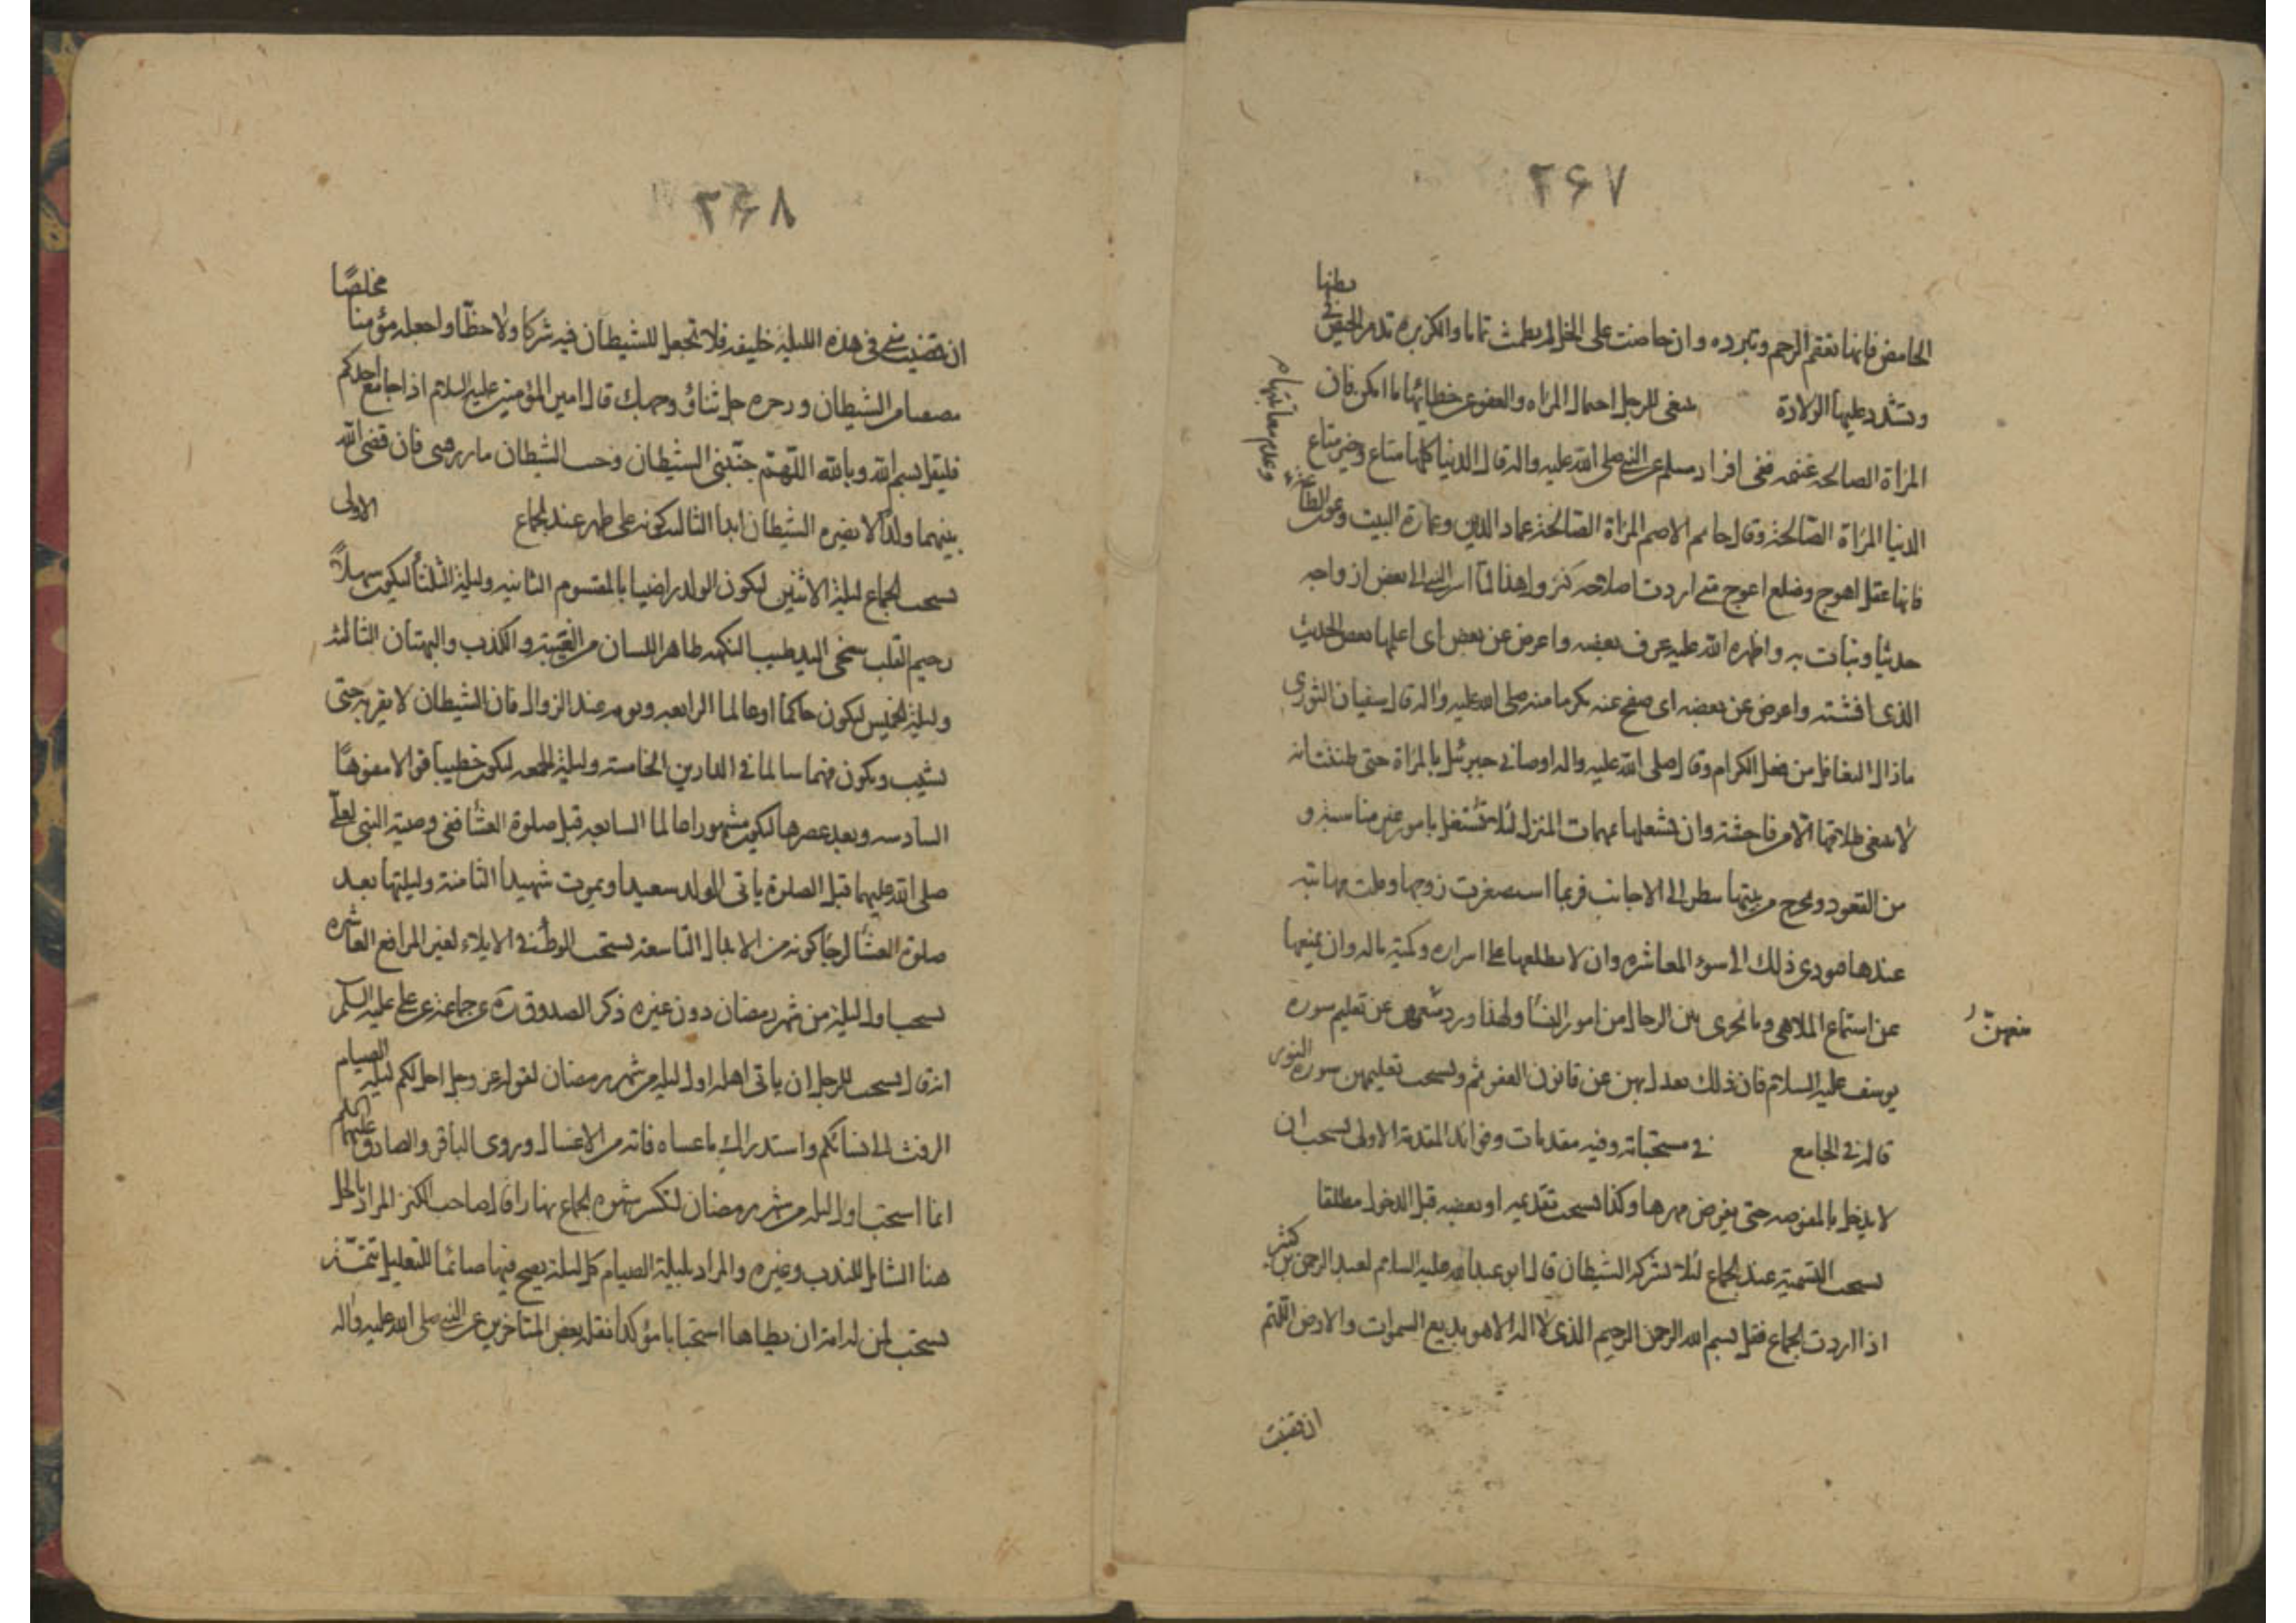 ۲۶۷
الحامض فانها تعقم الرحم وتبرده وان حاضت على الخل لم يطمث تماما والكزبره تدر الحيض فى بطنها
وتشدد عليها الولادة ينبغى للرجل احمال المراه والعفو عن خطائها ما امكن فان
وعدم معاتبتها
المراة الصالحه غنيمه ففى افراد مسلم عن النبى صلى الله عليه واله قال الدنيا كلها متاع وخير متاع
الدنيا المراة الصالحة وقال حاتم الاصم المراة الصالحة عماد الدين وعمارة البيت وعون الطاعة
فانها عقل اهوج وضلع اعوج متى اردت اصلاحه كسر ولهذا لما اسر النبى الى بعض ازواجه
حديثا ونبات به واظهره الله عليه عرف بعضه واعرض عن بعض اى اعلمها بعض الحديث
الذى افشته واعرض عن بعضه اى صفح عنه تكرما منه صلى الله عليه واله قال سفيان الثورى
ماذال التغافل من فعل الكرام وقال صلى الله عليه واله اوصانى جبرئيل بالمراة حتى ظننت انه
لا ينبغى طلاقها الا من فاحشة وان يشغلها بمهمات المنزل لئلا تشتغل بامور غير مناسبة و
من القعود وتخرج من بيتها سطر الى الاجانب فربما استصغرت زوجها وقلت مهابته
عندها فيودى ذلك الى سوء المعاشره وان لا يطلعها على اسراره وكمية ماله وان يمنعها
عن استماع الملاهى وما يجرى بين الرجال من امور النسا ولهذا ورد عن تعليم سوره
منعهنّ
يوسف عليه السلام فان ذلك يعدل بهن عن قانون العفه ثم ويستحب تعليمهن سورة النور
قاله فى الجامع فى مستحباته وفيه مقدمات وفوائد المقدمة الاولى يستحب ان
لا يدخل بالمفوضه حتى يفرض مهرها وكذا يستحب تقديمه او بعضه قبل الدخول مطلقا
يستحب التسمية عند الجماع لئلا يشركه الشيطان قال ابو عبد الله عليه السلام لعبد الرحمن بن كثير
اذا اردت الجماع فقل بسم الله الرحمن الرحيم الذى لا اله الا هو بديع السموات والارض اللهم
ان قضيت
۲۶۸
ان قضيت منى فى هذه الليلة خليفه فلا تجعل للشيطان فيه شركا ولا حظّا واجعله مؤمنا مخلصًا
مصفى من الشيطان ورجزه جل ثناؤك قال امير المؤمنين عليه السلام اذا جامع احدكم
فليقل بسم الله وبالله اللهم جنّبنى الشيطان وجنب الشيطان ما رزقتنى فان قضى الله
بينهما ولدا لا يضره الشيطان ابدا الثالث كونه على طهر عند الجماع الاولى
يستحب الجماع ليلة الاثنين ليكون الولد راضيا بالمقسوم الثانيه وليلة الثلثا ليكون سهلًا
رحيم القلب سخى اليد طيب النكهه طاهر اللسان من الغيبة والكذب والبهتان الثالثه
وليلة الخميس ليكون حاكما او عالما الرابعه ويومه عند الزوال فان الشيطان لا يقربه حتى
يشيب ويكون فهما سالما فى الدارين الخامسة وليلة الجمعه ليكون خطيبا قوالا مفوهًا
السادسه وبعد عصرها ليكون مشهورا عالما السابعه قبل صلوة العشا ففى وصية النبى لعلى
صلى الله عليهما قبل الصلوة ياتى الولد سعيدا ويموت شهيدا الثامنة وليلتها بعد
صلوة العشا لرجا كونه من الابدال التاسعة يستحب الوطء فى الايلاء لغير المرافع العاشره
يستحب اول ليلة من شهر رمضان دون غيره ذكر الصدوق ره عن جماعة عن على عليه السلم
انه قال يستحب للرجل ان ياتى اهله اول ليله من شهر رمضان لقوله عز وجل احل لكم ليلة الصيام
الرفث الى نسائكم واستدراك ما عساه فاته من الاغسال وروى الباقر والصادق عليهما السلم
انما استحب اول ليله من شهر رمضان لتكسر شهوه الجماع نهارا قال صاحب الكنز المراد بالحل
هنا الشامل للندب وغيره والمراد بليلة الصيام كل ليلة يصبح فيها صائما للتعليل
يستحب لمن له امة ان يطاها استحبابا مؤكدا نقله بعض المتاخرين عن النبى صلى الله عليه واله